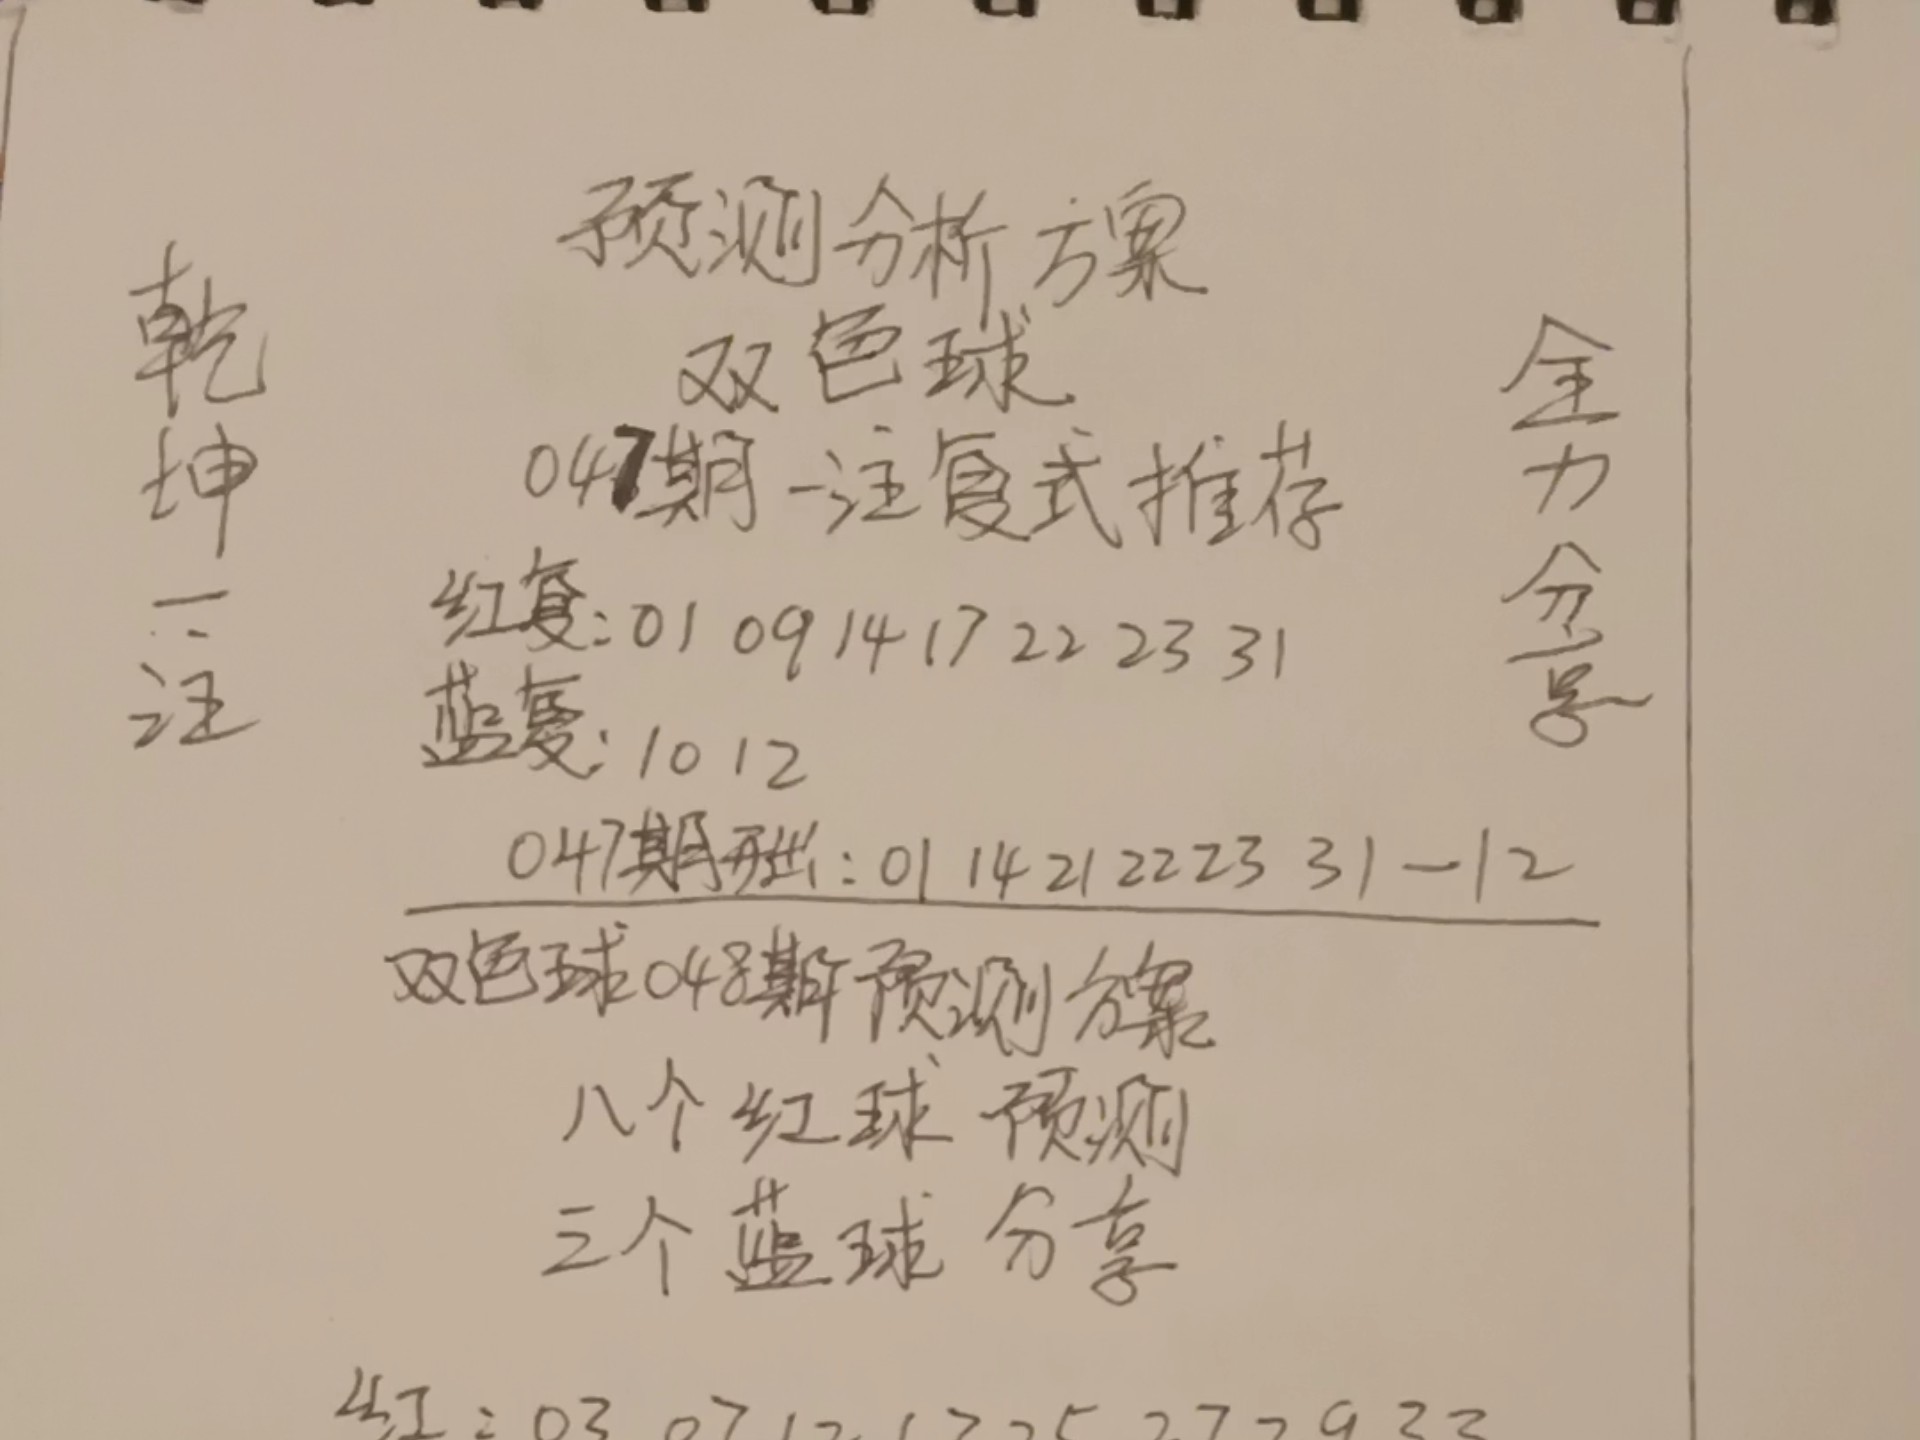 预测分析方案
双色球
047期一注复式推荐
红复:01 09 14 17 22 23 31
蓝复:10 12
047期开出:01 14 21 22 23 31-12
双色球048期预测方案
八个红球预测
三个蓝球分享
红:03 07 12 17 25 27 29 33
乾坤一注
全力分享